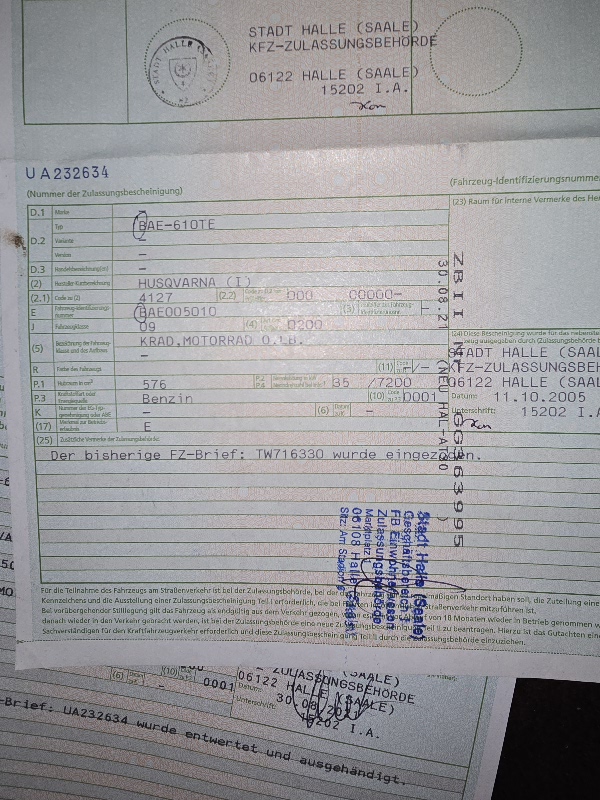 STADT HALLE (SAALE)
KFZ-ZULASSUNGSBEHÖRDE
06122 HALLE (SAALE)
15202 I.A.
STADT HALLE
UA232634
(Nummer der Zulassungsbescheinigung)
(Fahrzeug-Identifizierungsnummer
D.1 Marke
(23) Raum für interne Vermerke des
Typ BAE-610TE
D.2 Variante –
Version –
D.3 Handelsbezeichnung(en) –
(2) Hersteller-Kurzbezeichnung HUSQVARNA (I)
(2.1) Code zu (2) 4127 (2.2) 000 00000-
E Fahrzeug-Identifizierungs-nummer BAE005010 (3) –
J Fahrzeugklasse 09 (4) 0200
(5) Bezeichnung der Fahrzeug-klasse und des Aufbaus KRAD.MOTORRAD O.LB.
–
R Farbe des Fahrzeugs (11) –/–
P.1 Hubraum in cm³ 576 P.2 P.4 35 /7200
P.3 Kraftstoffart oder Energiequelle Benzin (10) 0001
K – (6) –
(17) E
(25) Zusätzliche Vermerke der Zulassungsbehörde:
Der bisherige FZ-Brief: TW716330 wurde eingezogen.
(24) Diese Bescheinigung wurde für das
STADT HALLE (SAAL
KFZ-ZULASSUNGSBEH
06122 HALLE (SAAL
Datum: 11.10.2005
Unterschrift: 15202 I.A
ZBII NR. GG363995
30.08.21 (NEU HAL-AT30)
Stadt Halle (Saale)
Geschäftsbereich
FB Einwohnerwesen
Zulassungsbehörde
Marktplatz
06108 Halle (Saale)
Sitz: Am
Für die Teilnahme des Fahrzeugs am Straßenverkehr ist bei der Zulassungsbehörde, bei der
mäßigen Standort haben soll, die Zuteilung eine
Kennzeichens und die Ausstellung einer Zulassungsbescheinigung Teil I erforderlich, die bei
Straßenverkehr mitzuführen ist.
Bei vorübergehender Stilllegung gilt das Fahrzeug als endgültig aus dem Verkehr gezogen,
von 18 Monaten wieder in Betrieb genommen
danach wieder in den Verkehr gebracht werden, ist bei der Zulassungsbehörde eine neue
zu beantragen. Hierzu ist das Gutachten eine
Sachverständigen für den Kraftfahrzeugverkehr erforderlich und diese Zulassungsbescheinigung Teil II durch die Zulassungsbehörde einzuziehen.
(6) – (10) 0001
ZULASSUNGSBEHÖRDE
06122 HALLE (SAALE)
Datum: 30.08.2021
Unterschrift: 15202 I.A.
-Brief: UA232634 wurde entwertet und ausgehändigt.